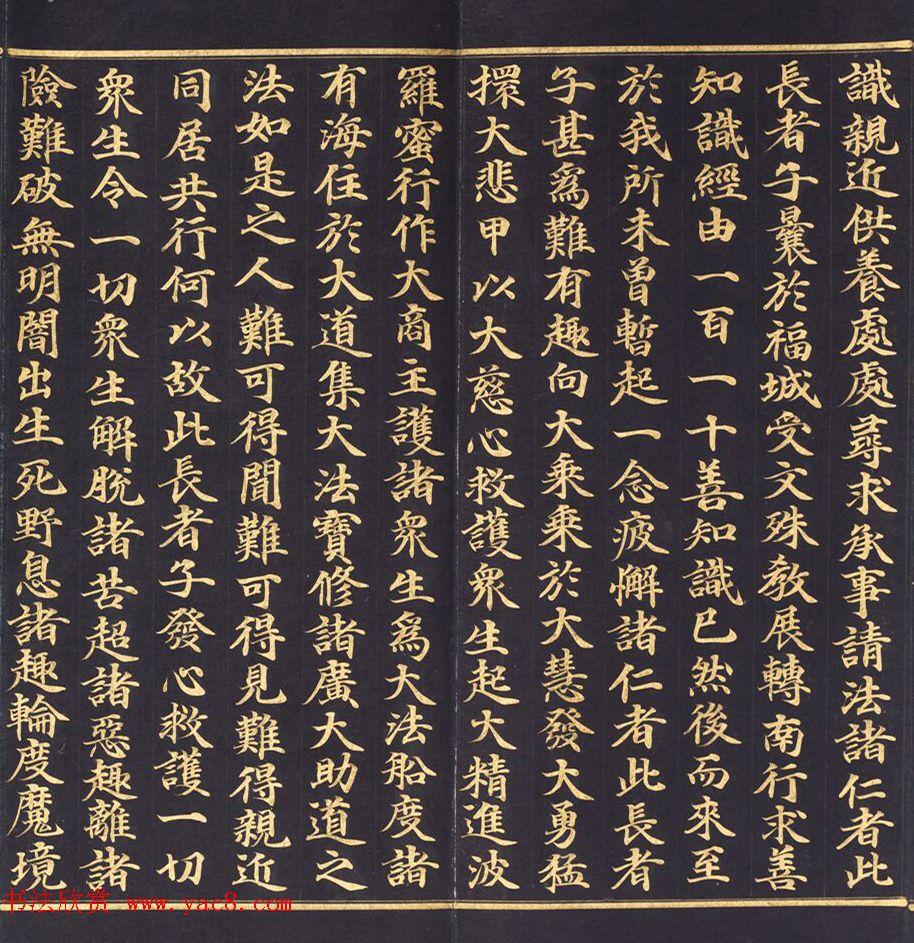 識親近供養處處尋求承事請法諸仁者此
長者子曩於福城受文殊教展轉南行求善
知識經由一百一十善知識已然後而來至
於我所未曾暫起一念疲懈諸仁者此長者
子甚為難有趣向大乘乘於大慧發大勇猛
擐大悲甲以大慈心救護眾生起大精進波
羅蜜行作大商主護諸眾生為大法船度諸
有海住於大道集大法寶修諸廣大助道之
法如是之人難可得聞難可得見難得親近
同居共行何以故此長者子發心救護一切
眾生令一切眾生解脫諸苦超諸惡趣離諸
險難破無明闇出生死野息諸趣輪度魔境
书法欣赏 www.yac8.com